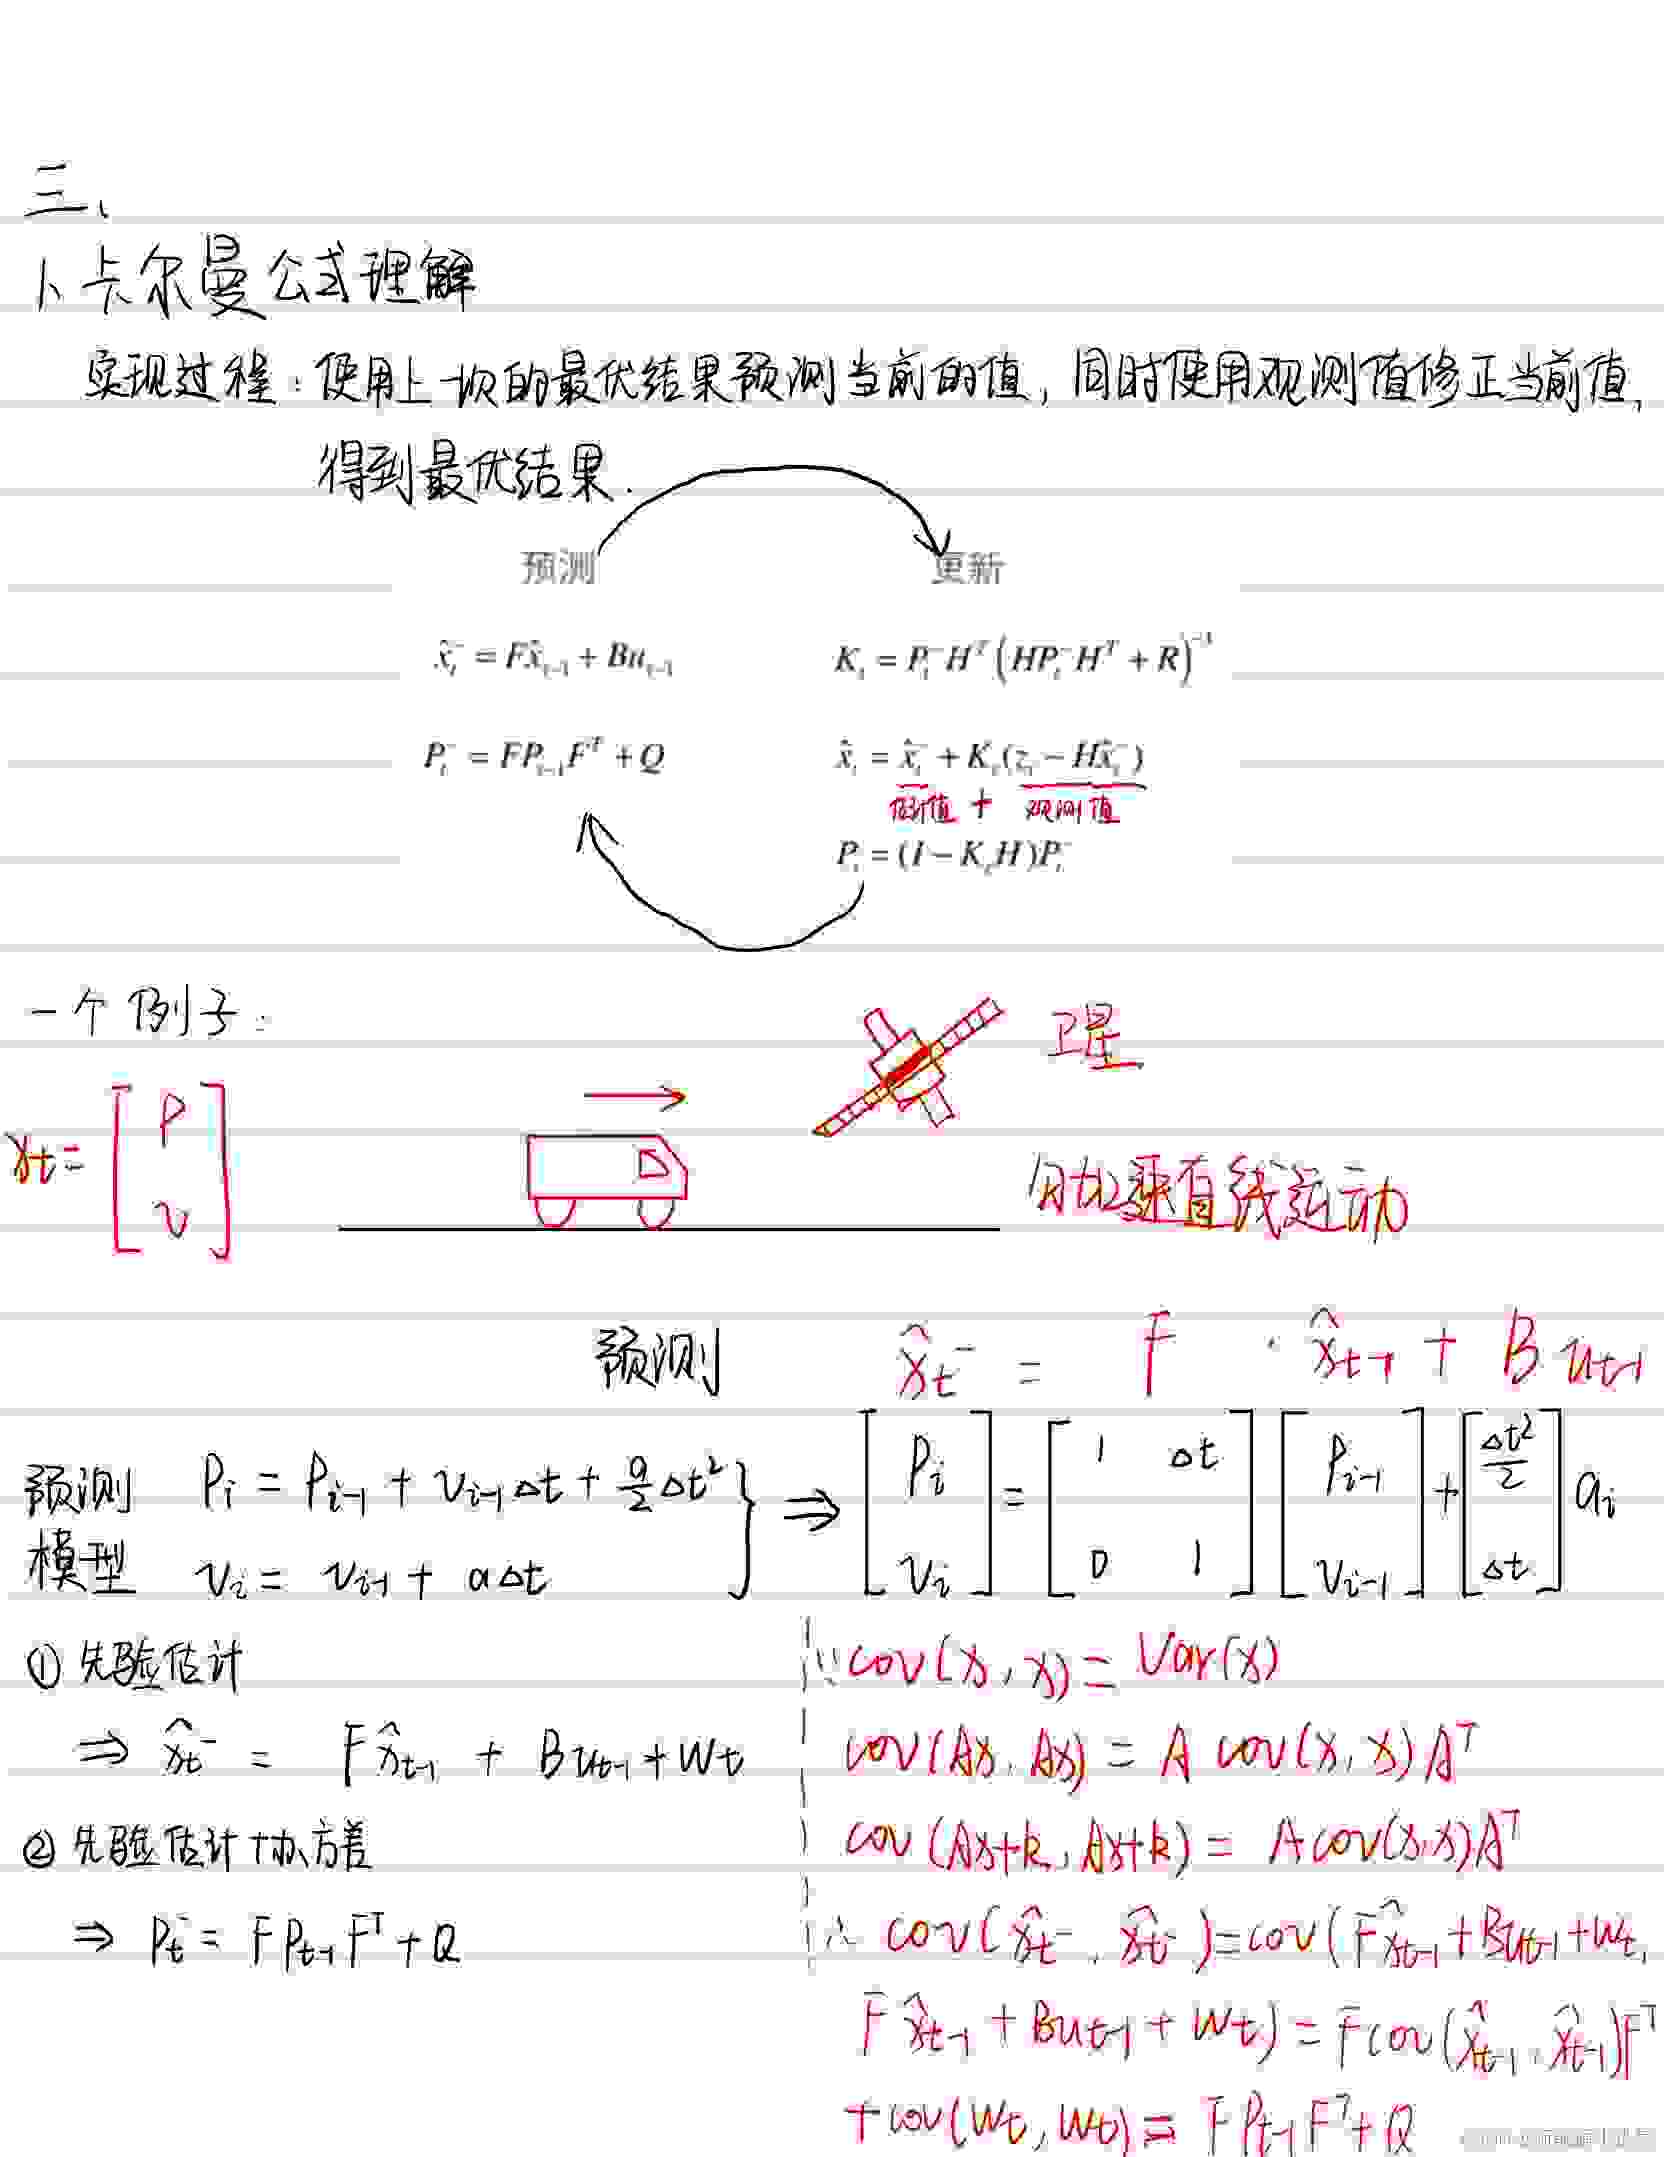 三、
1、卡尔曼公式理解
实现过程：使用上一次的最优结果预测当前的值，同时使用观测值修正当前值，
得到最优结果.
预测 更新
x̂ₜ⁻ = Fx̂ₜ₋₁ + Buₜ₋₁ Kₜ = Pₜ⁻Hᵀ(HPₜ⁻Hᵀ + R)⁻¹
Pₜ⁻ = FPₜ₋₁Fᵀ + Q x̂ₜ = x̂ₜ⁻ + Kₜ(zₜ − Hx̂ₜ⁻)
估计值 + 观测值
Pₜ = (I − KₜH)Pₜ⁻
一个例子：
卫星
xt = [P v]
直线运动
预测 x̂t⁻ = F · x̂t-1 + B ut-1
预测模型 Pi = Pi-1 + vi-1Δt + a/2 Δt² vi = vi-1 + aΔt ⇒ [Pi vi] = [1 Δt 0 1] [Pi-1 vi-1] + [Δt²/2 Δt] ai
① 先验估计
⇒ x̂t⁻ = Fx̂t-1 + But-1 + Wt
② 先验估计协方差
⇒ Pt⁻ = FPt-1Fᵀ + Q
∵ cov(x, x) = Var(x)
cov(Ax, Ax) = A cov(x, x)Aᵀ
cov(Ax+k, Ax+k) = A cov(x, x)Aᵀ
∴ cov(x̂t⁻, x̂t⁻) = cov(Fx̂t-1 + But-1 + Wt,
Fx̂t-1 + But-1 + Wt) = Fcov(x̂t-1, x̂t-1)Fᵀ
+cov(Wt, Wt) = FPt-1Fᵀ + Q